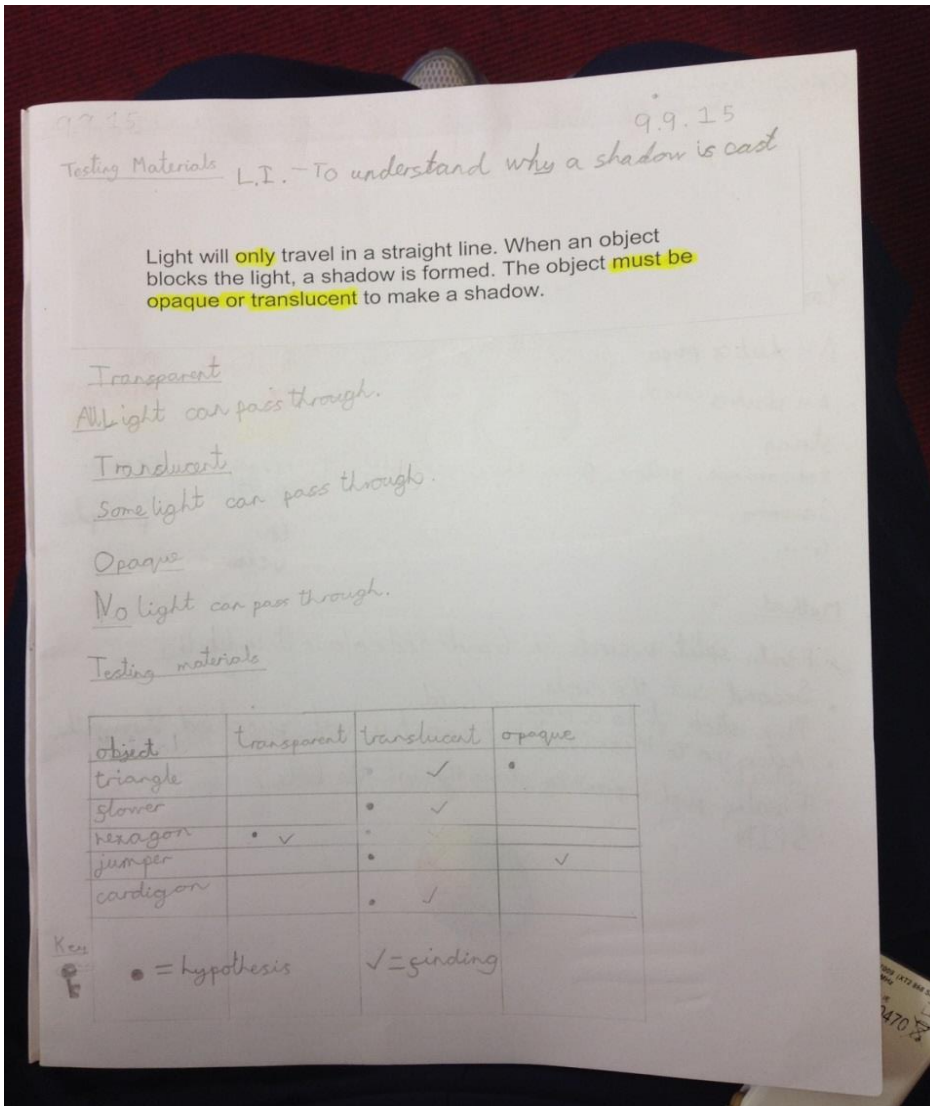 9.9.15
9.9.15
Testing Materials L.I. - To understand why a shadow is cast
Light will only travel in a straight line. When an object
blocks the light, a shadow is formed. The object must be
opaque or translucent to make a shadow.
Transparent
All Light can pass through.
Translucent
Some light can pass through.
Opaque
No light can pass through.
Testing materials
object transparent translucent opaque
triangle ✓ •
flower • ✓
hexagon • ✓
jumper • ✓
cardigon • ✓
Key
• = hypothesis ✓ = finding